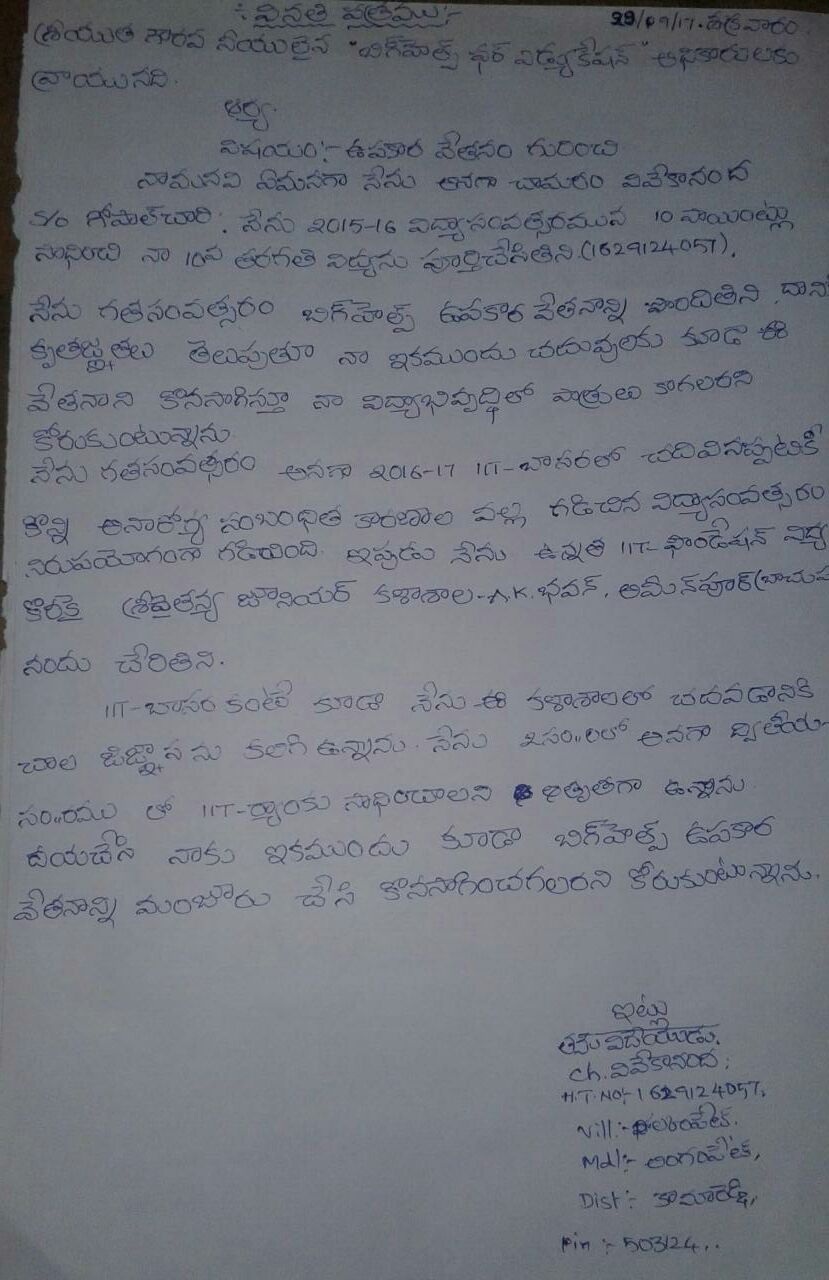 :- వినతి పత్రము :-
29/09/17. శుక్రవారం.
శ్రీయుత గౌరవ నీయులైన "బిగ్‌హెల్ప్ ఫర్ ఎడ్యుకేషన్" అధికారులకు
వ్రాయునది.
ఆర్య.
విషయం:- ఉపకార వేతనం గురించి
నామనవి ఏమనగా నేను అనగా చామరం వివేకానంద
S/o గోపాల్‌చారి. నేను 2015-16 విద్యాసంవత్సరమున 10 పాయింట్లు
సాధించి నా 10వ తరగతి విద్యను పూర్తిచేసితిని.(1629124057).
నేను గతసంవత్సరం బిగ్‌హెల్ప్ ఉపకార వేతనాన్ని పొందితిని. దానికి
కృతజ్ఞతలు తెలుపుతూ నా ఇకముందు చదువులకు కూడా ఈ
వేతనాని కొనసాగిస్తూ నా విద్యాభివృద్ధిలో పాత్రులు కాగలరని
కోరుకుంటున్నాను.
నేను గతసంవత్సరం అనగా 2016-17 IIT-బాసరలో చదివినప్పటికి
కొన్ని అనారోగ్య సంబంధిత కారణాల వల్ల గడిచిన విద్యాసంవత్సరం
నిరుపయోగంగా గడియింది. ఇపుడు నేను ఉన్నత IIT-ఫౌండేషన్ విద్య
కొరకై శ్రీచైతన్య జూనియర్ కళాశాల-A.K.భవన్, అమీన్‌పూర్(బాచుప
నందు చేరితిని.
IIT-బాసర కంటే కూడా నేను ఈ కళాశాలలో చదవడానికి
చాల జిజ్ఞాస ను కలిగి ఉన్నాను. నేను 2సం॥లలో అనగా ద్వితీయ-
సం॥రము లో IIT-ర్యాంకు సాధించాలని ఆతృతగా ఉన్నాను.
దయచేసి నాకు ఇకముందు కూడా బిగ్‌హెల్ప్ ఉపకార
వేతనాన్ని మంజూరు చేసి కొనసాగించగలరని కోరుకుంటూన్నాను.
ఇట్లు
తమ విదేయుడు.
Ch. వివేకానంద;
H.T.NO:- 1629124057,
Vill:-
Mdl:- లింగంపేట్,
Dist:- కామారెడ్డి,
Pin :- 503124..